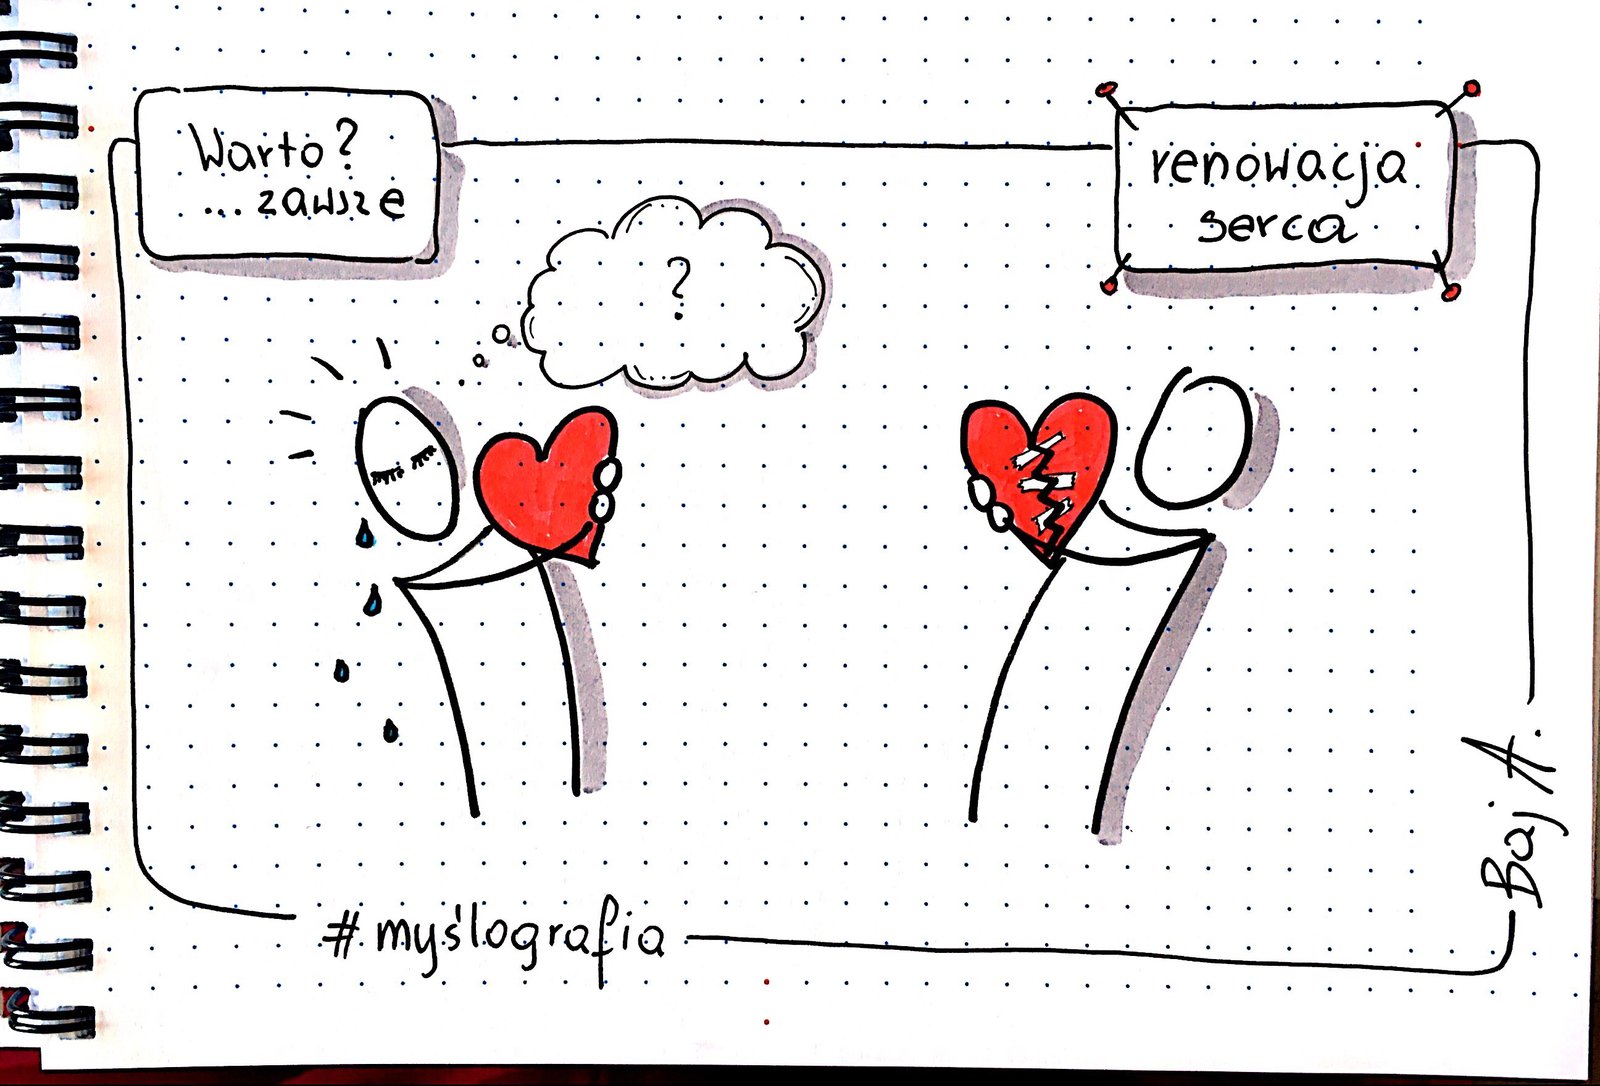 Warto?
...zawsze
renowacja
serca
?
#myślografia
Baj A.